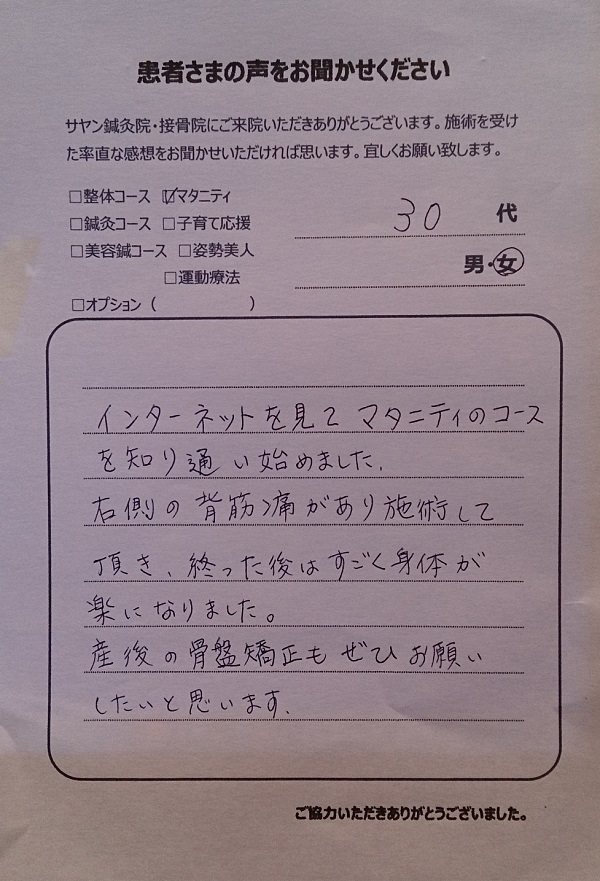 患者さまの声をお聞かせください
サヤン鍼灸院・接骨院にご来院いただきありがとうございます。施術を受け
た率直な感想をお聞かせいただければ思います。宜しくお願い致します。
□整体コース ☑マタニティ
□鍼灸コース □子育て応援
□美容鍼コース □姿勢美人
□運動療法
□オプション( )
30 代
男・女
インターネットを見て マタニティのコース
を知り通い始めました.
右側の背筋に痛があり施術して
頂き、終った後はすごく身体が
楽になりました。
産後の骨盤矯正もぜひお願い
したいと思います.
ご協力いただきありがとうございました。